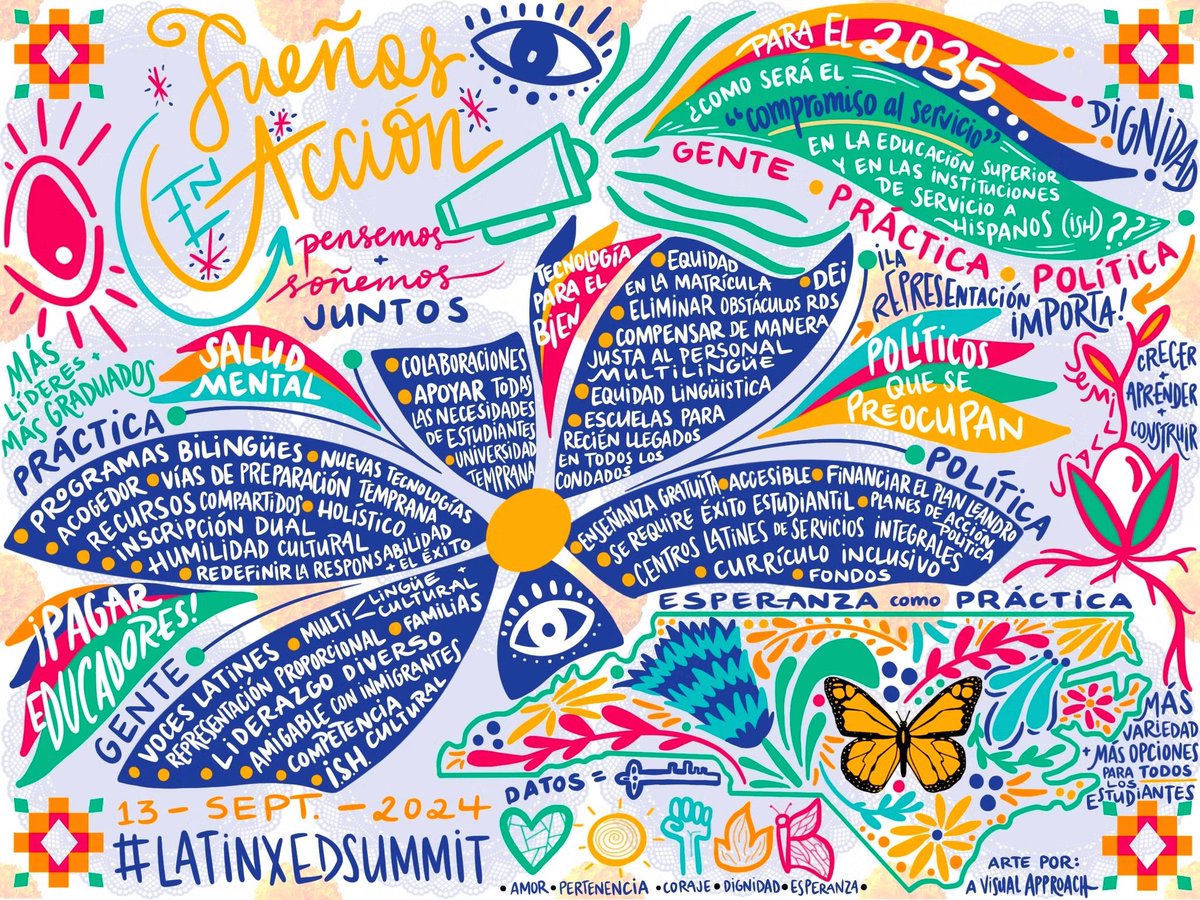 Sueños
IN
Acción
pensemos
+
soñemos
JUNTOS
PARA EL 2035...
¿COMO SERÁ EL
"compromiso al servicio"
EN LA EDUCACIÓN SUPERIOR
Y EN LAS INSTITUCIONES
DE SERVICIO A
HISPANOS (ISH)??
GENTE • PRÁCTICA • POLÍTICA
DIGNIDAD
¡LA
REPRESENTACIÓN
IMPORTA!
MÁS
LÍDERES +
MÁS GRADUADOS
SALUD
MENTAL
• COLABORACIONES
• APOYAR TODAS
LAS NECESIDADES
DE ESTUDIANTES
• UNIVERSIDAD
TEMPRANA
TECNOLOGÍA
PARA EL
BIEN
• EQUIDAD
EN LA MATRÍCULA
• DEI
• ELIMINAR OBSTÁCULOS RDS
• COMPENSAR DE MANERA
JUSTA AL PERSONAL
MULTILINGÜE
• EQUIDAD LINGÜÍSTICA
• ESCUELAS PARA
RECIÉN LLEGADOS
EN TODOS LOS
CONDADOS
POLÍTICOS
QUE SE
PREOCUPAN
SEMILLA
CRECER
+
APRENDER
+
CONSTRUIR
PRÁCTICA
• PROGRAMAS BILINGÜES • NUEVAS TECNOLOGÍAS
• ACOGEDOR • VÍAS DE PREPARACIÓN TEMPRANA
• RECURSOS COMPARTIDOS • HOLÍSTICO
• INSCRIPCIÓN DUAL
• HUMILIDAD CULTURAL
• REDEFINIR LA RESPONSABILIDAD
+ EL ÉXITO
POLÍTICA
• ENSEÑANZA GRATUITA • ACCESIBLE • FINANCIAR EL PLAN LEANDRO
• SE REQUIRE ÉXITO ESTUDIANTIL • PLANES DE ACCIÓN
POLÍTICA
• CENTROS LATINES DE SERVICIOS INTEGRALES
• CURRÍCULO INCLUSIVO
• FONDOS
¡PAGAR
EDUCADORES!
GENTE
• VOCES LATINES • MULTI < LINGÜE +
CULTURAL
• REPRESENTACIÓN PROPORCIONAL • FAMILIAS
• LIDERAZGO DIVERSO
• AMIGABLE CON INMIGRANTES
• COMPETENCIA
CULTURAL
• I.S.H.
ESPERANZA como PRÁCTICA
MÁS
VARIEDAD
+ MÁS OPCIONES
PARA TODOS
LOS
ESTUDIANTES
DATOS =
13 - SEPT. - 2024
#LATINXEDSUMMIT
• AMOR • PERTENENCIA • CORAJE • DIGNIDAD • ESPERANZA •
ARTE POR:
A VISUAL APPROACH